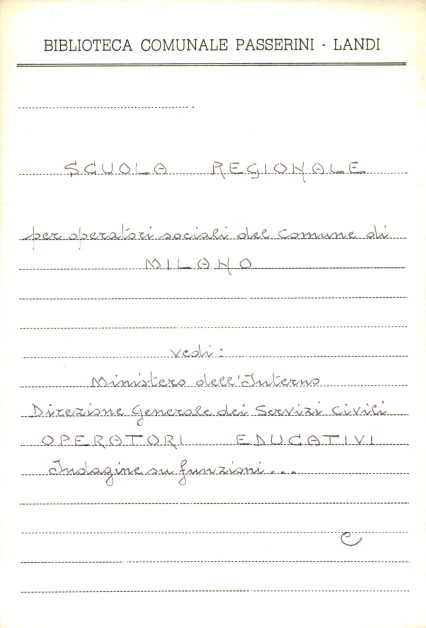 BIBLIOTECA COMUNALE PASSERINI - LANDI
SCUOLA REGIONALE
per operatori sociali del comune di
MILANO
vedi:
Ministero dell'Interno
Direzione Generale dei Servizi Civili
OPERATORI EDUCATIVI
Indagine su funzioni...
C